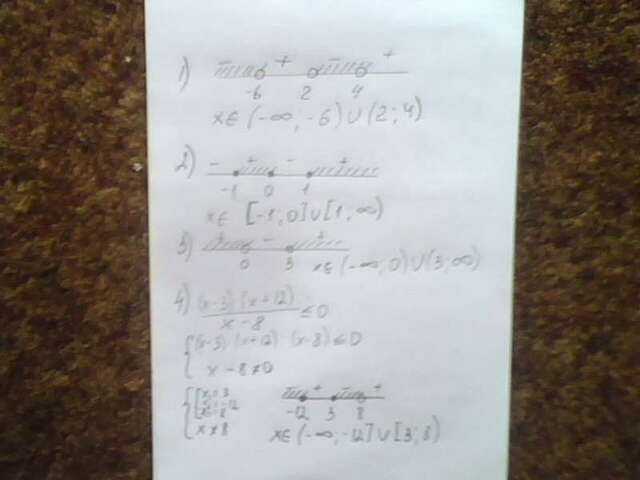 1) - + - +
-6 2 4
x∈ (-∞; -6) ∪ (2; 4)
2) - + - +
-1 0 1
x∈ [-1; 0] ∪ [1; ∞)
3) + - +
0 3 x∈ (-∞; 0) ∪ (3; ∞)
4) (x-3)·(x+12)
x-8 ≤0
(x-3)·(x+12)·(x-8)≤0
x-8≠0
x=3
x=-12
x=8
x≠8
- + - +
-12 3 8
x∈ (-∞; -12] ∪ [3; 8)